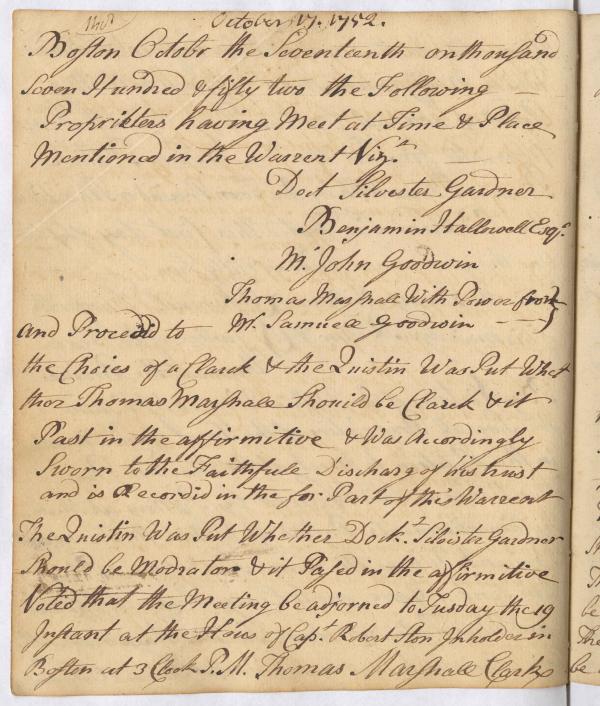 October 17. 1752.
Boston Octobr the Seventeenth on thousand
Seven Hundred & fifty two the Following
Proprieters having Meet at Time & Place
Mentioned in the Warrent Viz.t
Doct Silvester Gardner
Benjamin Hallowell Esqr.
Mr John Goodwin
Thomas Marshall With Power from
Mr. Samuell Goodwin
and Proceedid to
the Choies of a Clarck & the Quistin Was Put Whet
ther Thomas Marshall Should be Clarck & it
Past in the affirmitive & Was Accordingly
Sworn to the Faithfull Discharg of his trust
and is Recordid in the for Part of this Warrent
The Quistin Was Put Whether Dockt. Silvister Gardner
Should be Modrator & it Pased in the affirmitive
Voted that the Meeting be adjorned to Tusday the 19
Instant at the Hous of Capt. Robert Ston Inholder in
Boston at 3 Clock P.M. Thomas Marshall Clark